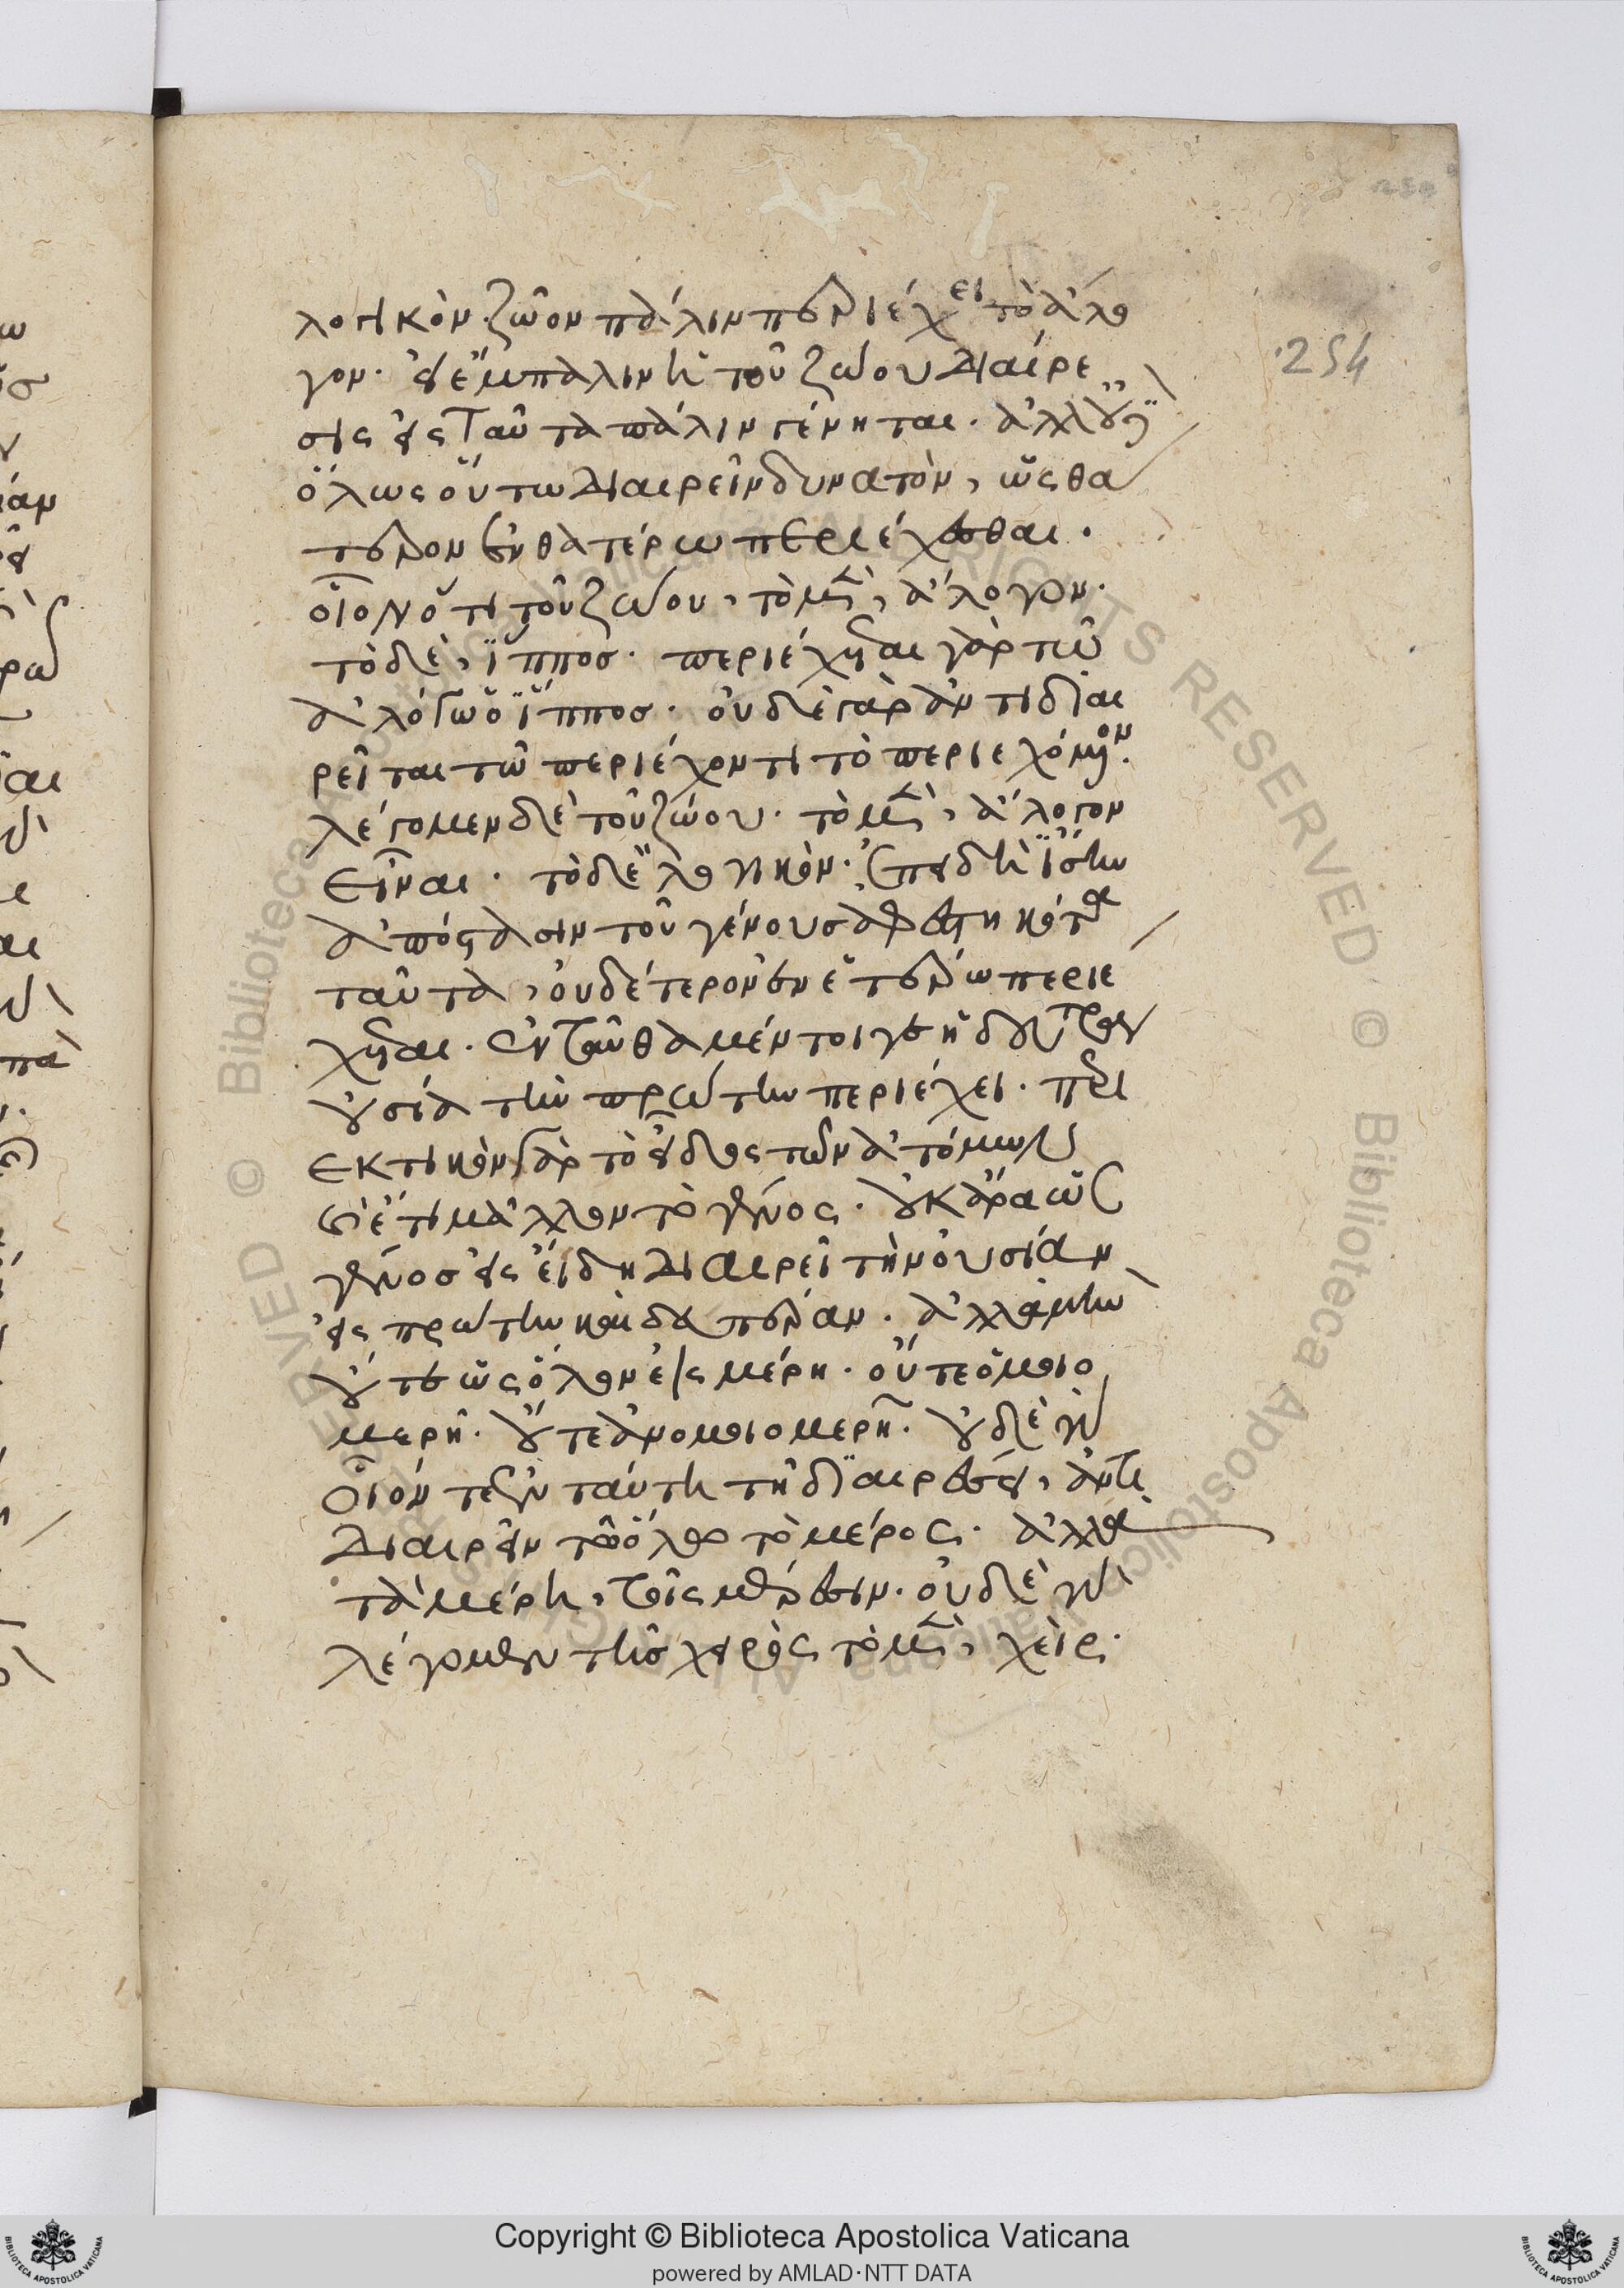 λογικὸν ζῶον πάλιν περιέχει τὸ ἄλο
γον. εἰ ἔμπαλιν ἡ τοῦ ζώου διαίρε
σις εἰς ταῦτα πάλιν γένηται. ἀλλ' οὐδ'
ὅλως οὕτω διαιρεῖν δυνατὸν, ὡς θά
τερον ἐν θατέρω περιέχεσθαι.
οἷον ὅτι τοῦ ζώου, τὸ μὲν, ἄλογον.
τὸ δὲ, ἵππος. περιέχεται γὰρ τῶ
ἀλόγω ὁ ἵππος. οὐδὲ γὰρ ἀντιδιαι
ρεῖται τῶ περιέχοντι τὸ περιεχόμενον.
λέγομεν δὲ τοῦ ζώου. τὸ μὲν, ἄλογον
εἶναι. τὸ δὲ λογικόν. ἐπειδὴ ἴσην
ἀπόστασιν τοῦ γένους ἀφέστηκότα
ταῦτα, οὐδέτερον ἐν ἑτέρω περιέ
χεται. ἐνταῦθα μέντοι γε ἡ δευτέρα
οὐσία τὴν πρώτην περιέχει. περι
εκτικὸν γὰρ τὸ εἶδος τῶν ἀτόμων
καὶ ἔτι μᾶλλον τὸ γένος. οὐκ ἄρα ὡς
γένος εἰς εἴδη διαιρεῖ τὴν οὐσίαν
εἰς πρώτην καὶ δευτέραν. ἀλλὰ μὴν
οὔτε ὡς ὅλον εἰς μέρη. οὔτε ὁμοιο
μερῆ. οὔτε ἀνομοιομερῆ. οὐδὲ γὰρ
οἷόν τε ἐν ταύτη τῆ διαιρέσει, ἀντι
διαιρεῖν τῶ ὅλω τὸ μέρος. ἀλλὰ
τὰ μέρη, τοῖς μέρεσιν. οὐδὲ γὰρ
λέγομεν τῆς χειρὸς τὸ μὲν, χεὶρ.
254
Copyright © Biblioteca Apostolica Vaticana
powered by AMLAD·NTT DATA